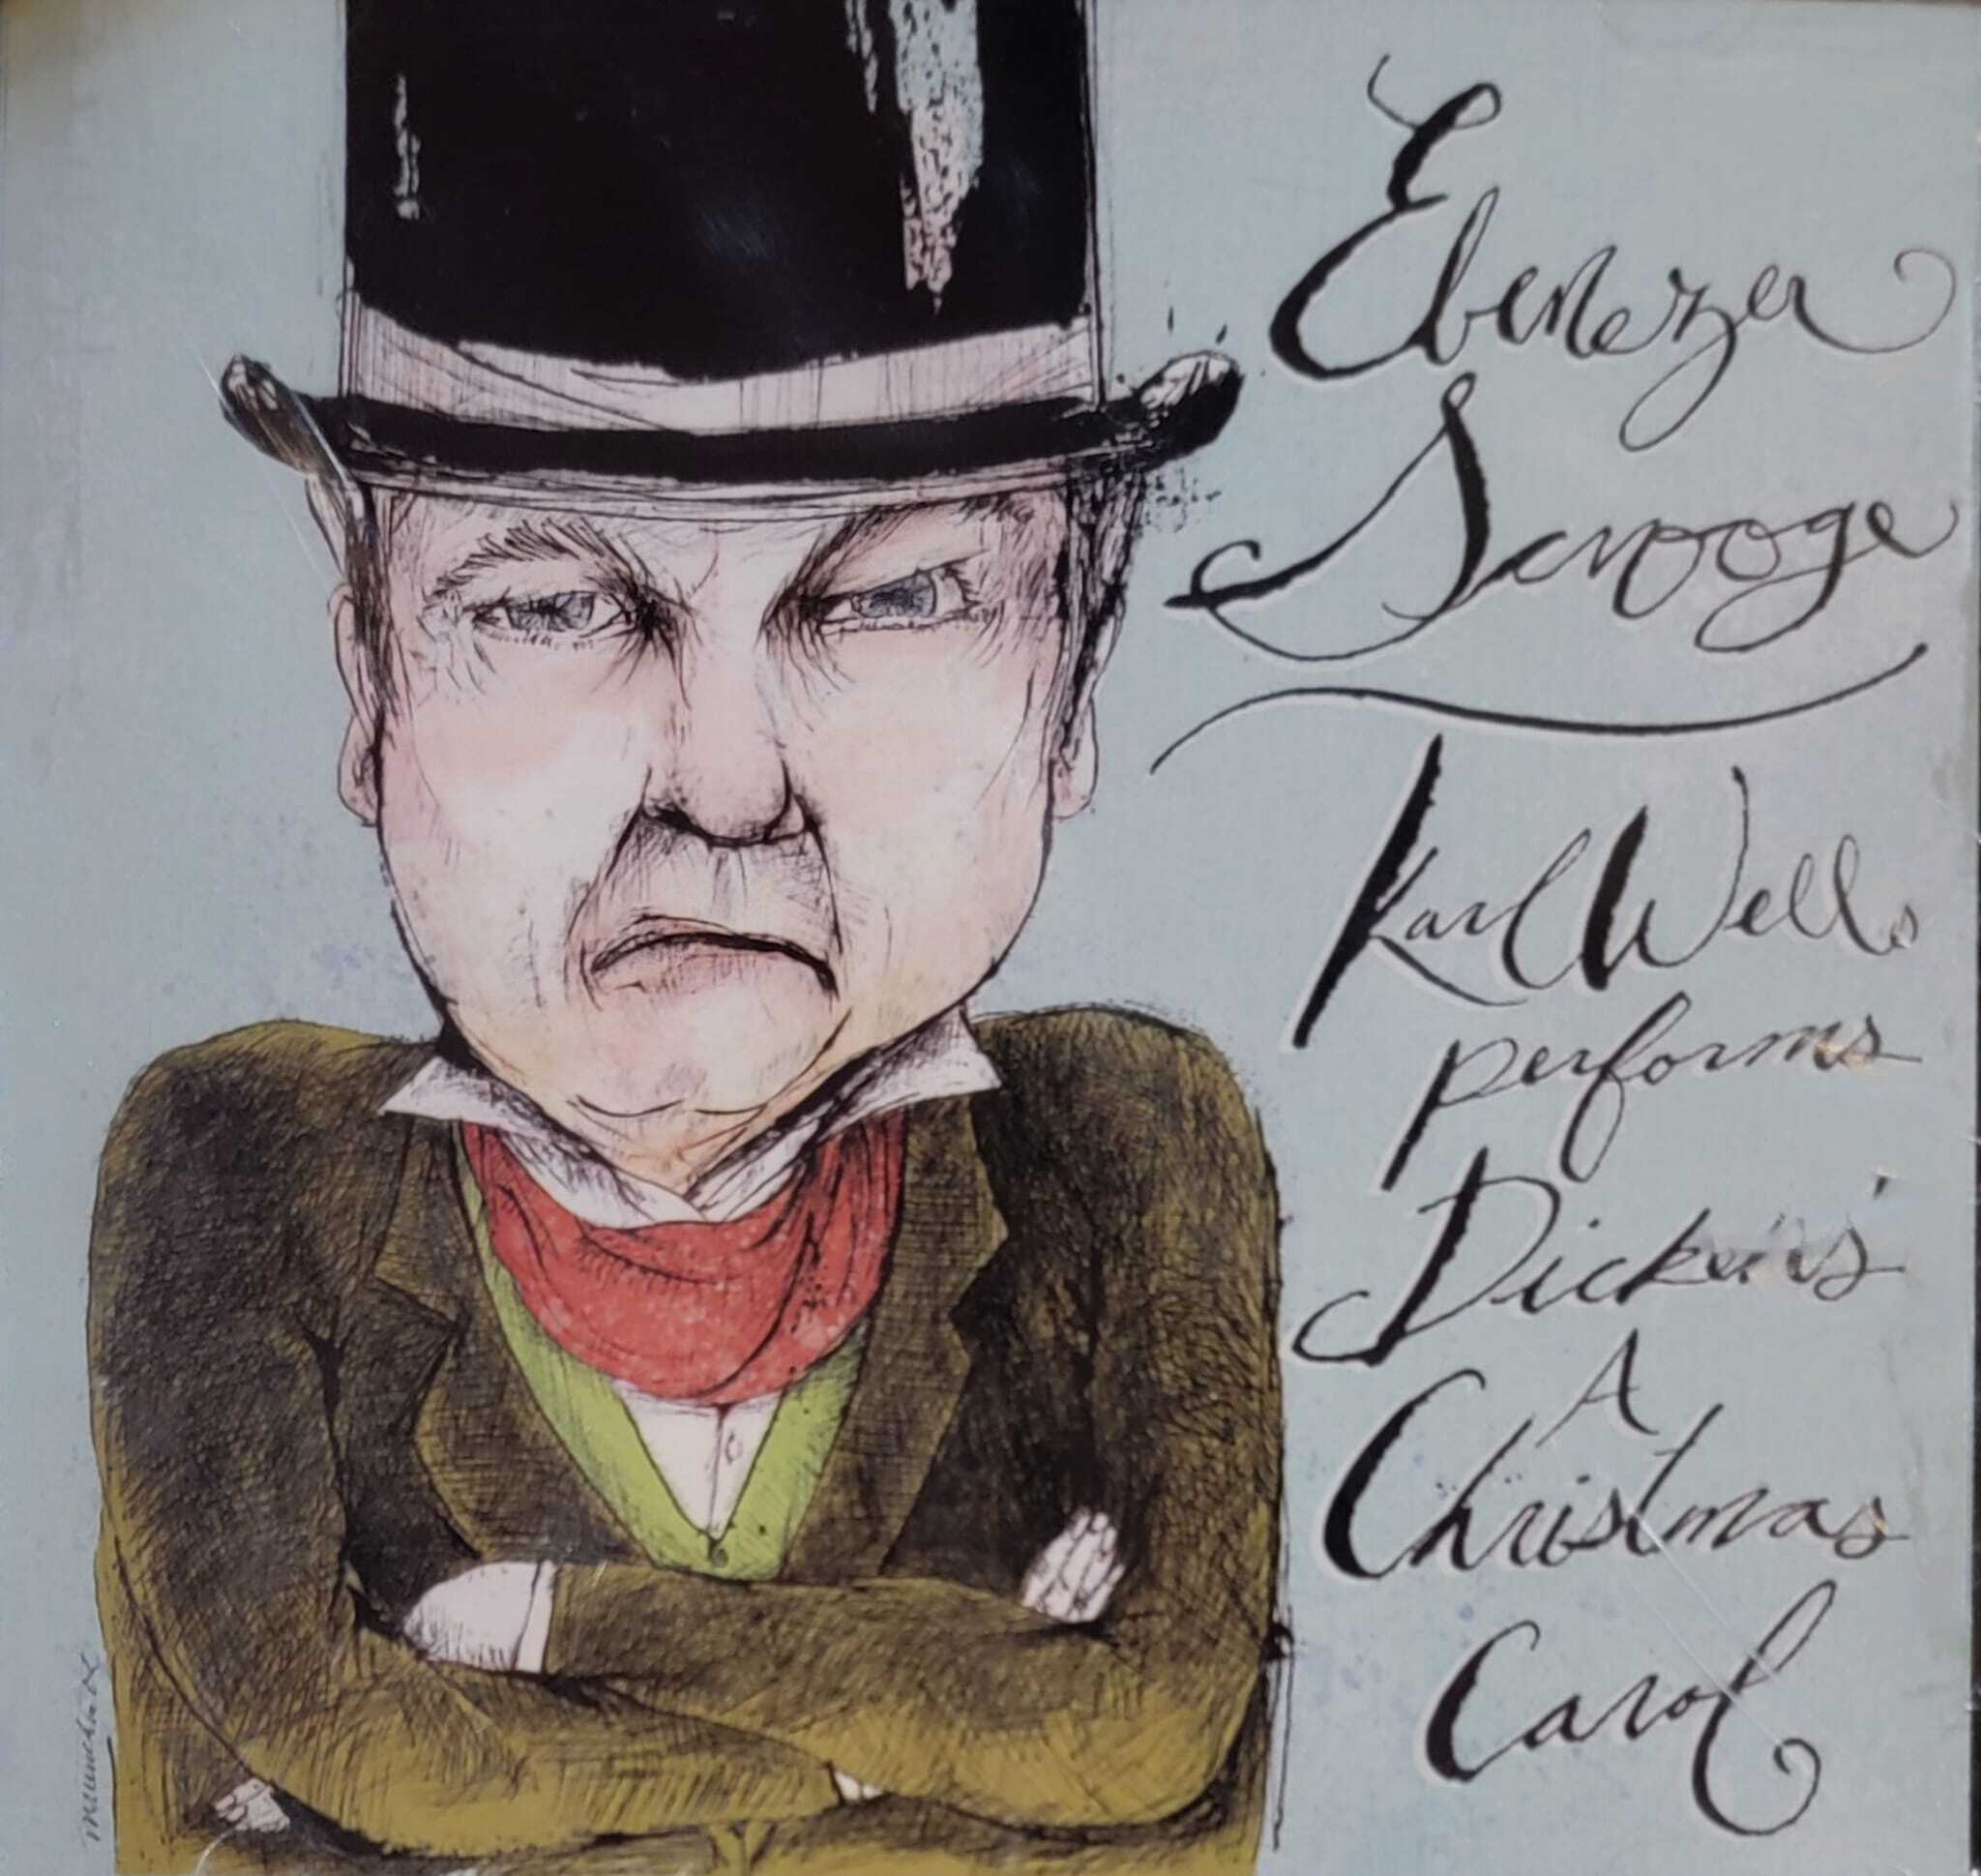 Ebenezer
Scrooge
Karl Wells
performs
Dickens'
A
Christmas
Carol